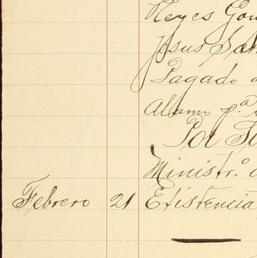 Reyes Gon
Jesus San
Pagado a
Alamo pª
Por S
Ministrº
Febrero 21 Existencia